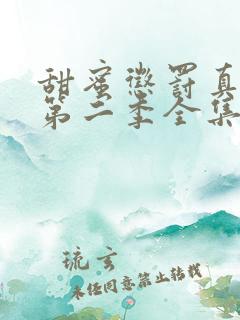 甜蜜惩罚真
第二季全集
琉玄
未经同意禁止转载